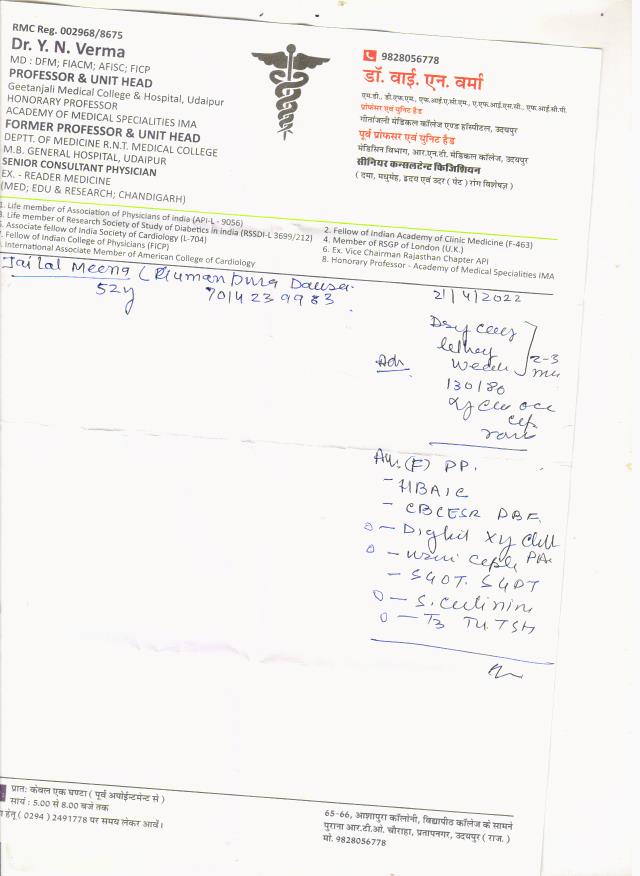 RMC Reg. 002968/8675
Dr. Y. N. Verma
MD : DFM; FIACM; AFISC; FICP
PROFESSOR & UNIT HEAD
Geetanjali Medical College & Hospital, Udaipur
HONORARY PROFESSOR
ACADEMY OF MEDICAL SPECIALITIES IMA
FORMER PROFESSOR & UNIT HEAD
DEPTT. OF MEDICINE R.N.T. MEDICAL COLLEGE
M.B. GENERAL HOSPITAL, UDAIPUR
SENIOR CONSULTANT PHYSICIAN
EX. - READER MEDICINE
(MED; EDU & RESEARCH; CHANDIGARH)
9828056778
डॉ. वाई. एन. वर्मा
एम.डी., डी.एफ.एम., एफ.आई.ए.सी.एम., ए.एफ.आई.एस.सी., एफ.आई.सी.पी.
प्रोफेसर एवं यूनिट हैड
गीतांजली मेडिकल कॉलेज एण्ड हॉस्पिटल, उदयपुर
पूर्व प्रोफेसर एवं यूनिट हैड
मेडिसिन विभाग, आर.एन.टी. मेडिकल कॉलेज, उदयपुर
सीनियर कन्सलटेन्ट फिजिशियन
( दमा, मधुमेह, हृदय एवं उदर ( पेट ) रोग विशेषज्ञ )
1. Life member of Association of Physicians of india (API-L - 9056)
3. Life member of Research Society of Study of Diabetics in india (RSSDI-L 3699/212)
5. Associate fellow of India Society of Cardiology (L-704)
7. Fellow of Indian College of Physicians (FICP)
International Associate Member of American College of Cardiology
2. Fellow of Indian Academy of Clinic Medicine (F-463)
4. Member of RSGP of London (U.K.)
6. Ex. Vice Chairman Rajasthan Chapter API
8. Honorary Professor - Academy of Medical Specialities IMA
Jailal Meena Dausa
52y 7014239983
21/4/2022
2-3
Adv
130/80
(F) PP.
- HBAIC
- CBC ESR PBF
- SGOT. SGPT
- T3 T4. TSH
प्रात: केवल एक घण्टा ( पूर्व अपोईन्टमेन्ट से )
सायं : 5.00 से 8.00 बजे तक
हेतू ( 0294 ) 2491778 पर समय लेकर आवें।
65-66, आशापुरा कॉलोनी, विद्यापीठ कॉलेज के सामने
पुराना आर.टी.ओ. चौराहा, प्रतापनगर, उदयपुर ( राज. )
मो. 9828056778